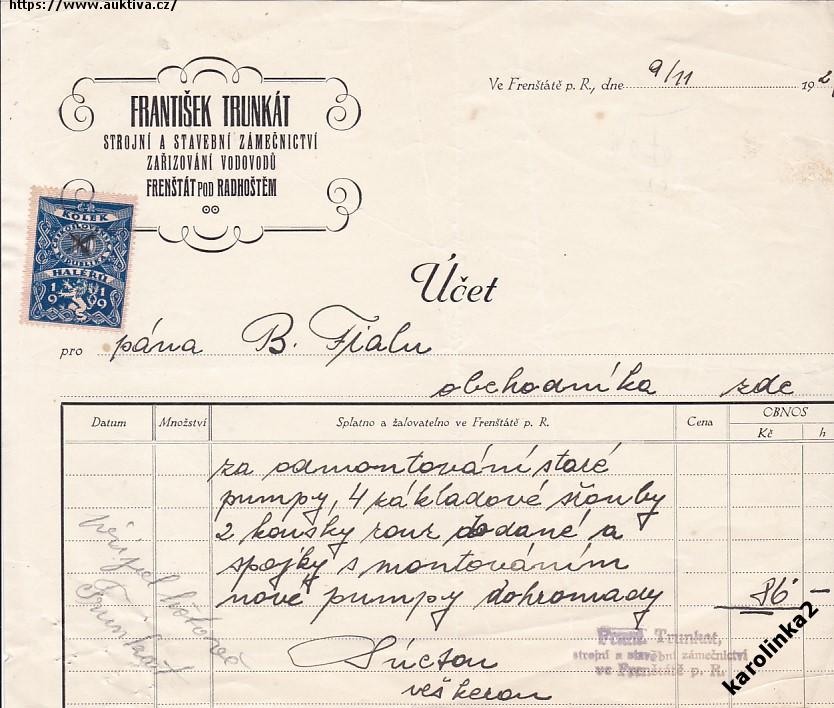 https://www.auktiva.cz/
FRANTIŠEK TRUNKÁT
STROJNÍ A STAVEBNÍ ZÁMEČNICTVÍ
ZAŘIZOVÁNÍ VODOVODŮ
FRENŠTÁT POD RADHOŠTĚM
Ve Frenštátě p. R., dne 9/11 192
KOLEK
HALÉŘŮ
1919
Účet
pro pána B. Fialu
obchodníka zde
Datum Množství Splatno a žalovatelno ve Frenštátě p. R. Cena OBNOS
Kč h
za odmontování staré
pumpy, 4 základové šrouby
2 kousky rour dodané a
spojky s montováním
nové pumpy dohromady 86 –
Trunkát
S úctou
veškerou
Frant. Trunkát,
strojní a stavební zámečnictví
ve Frenštátě p. R.
karolinka2